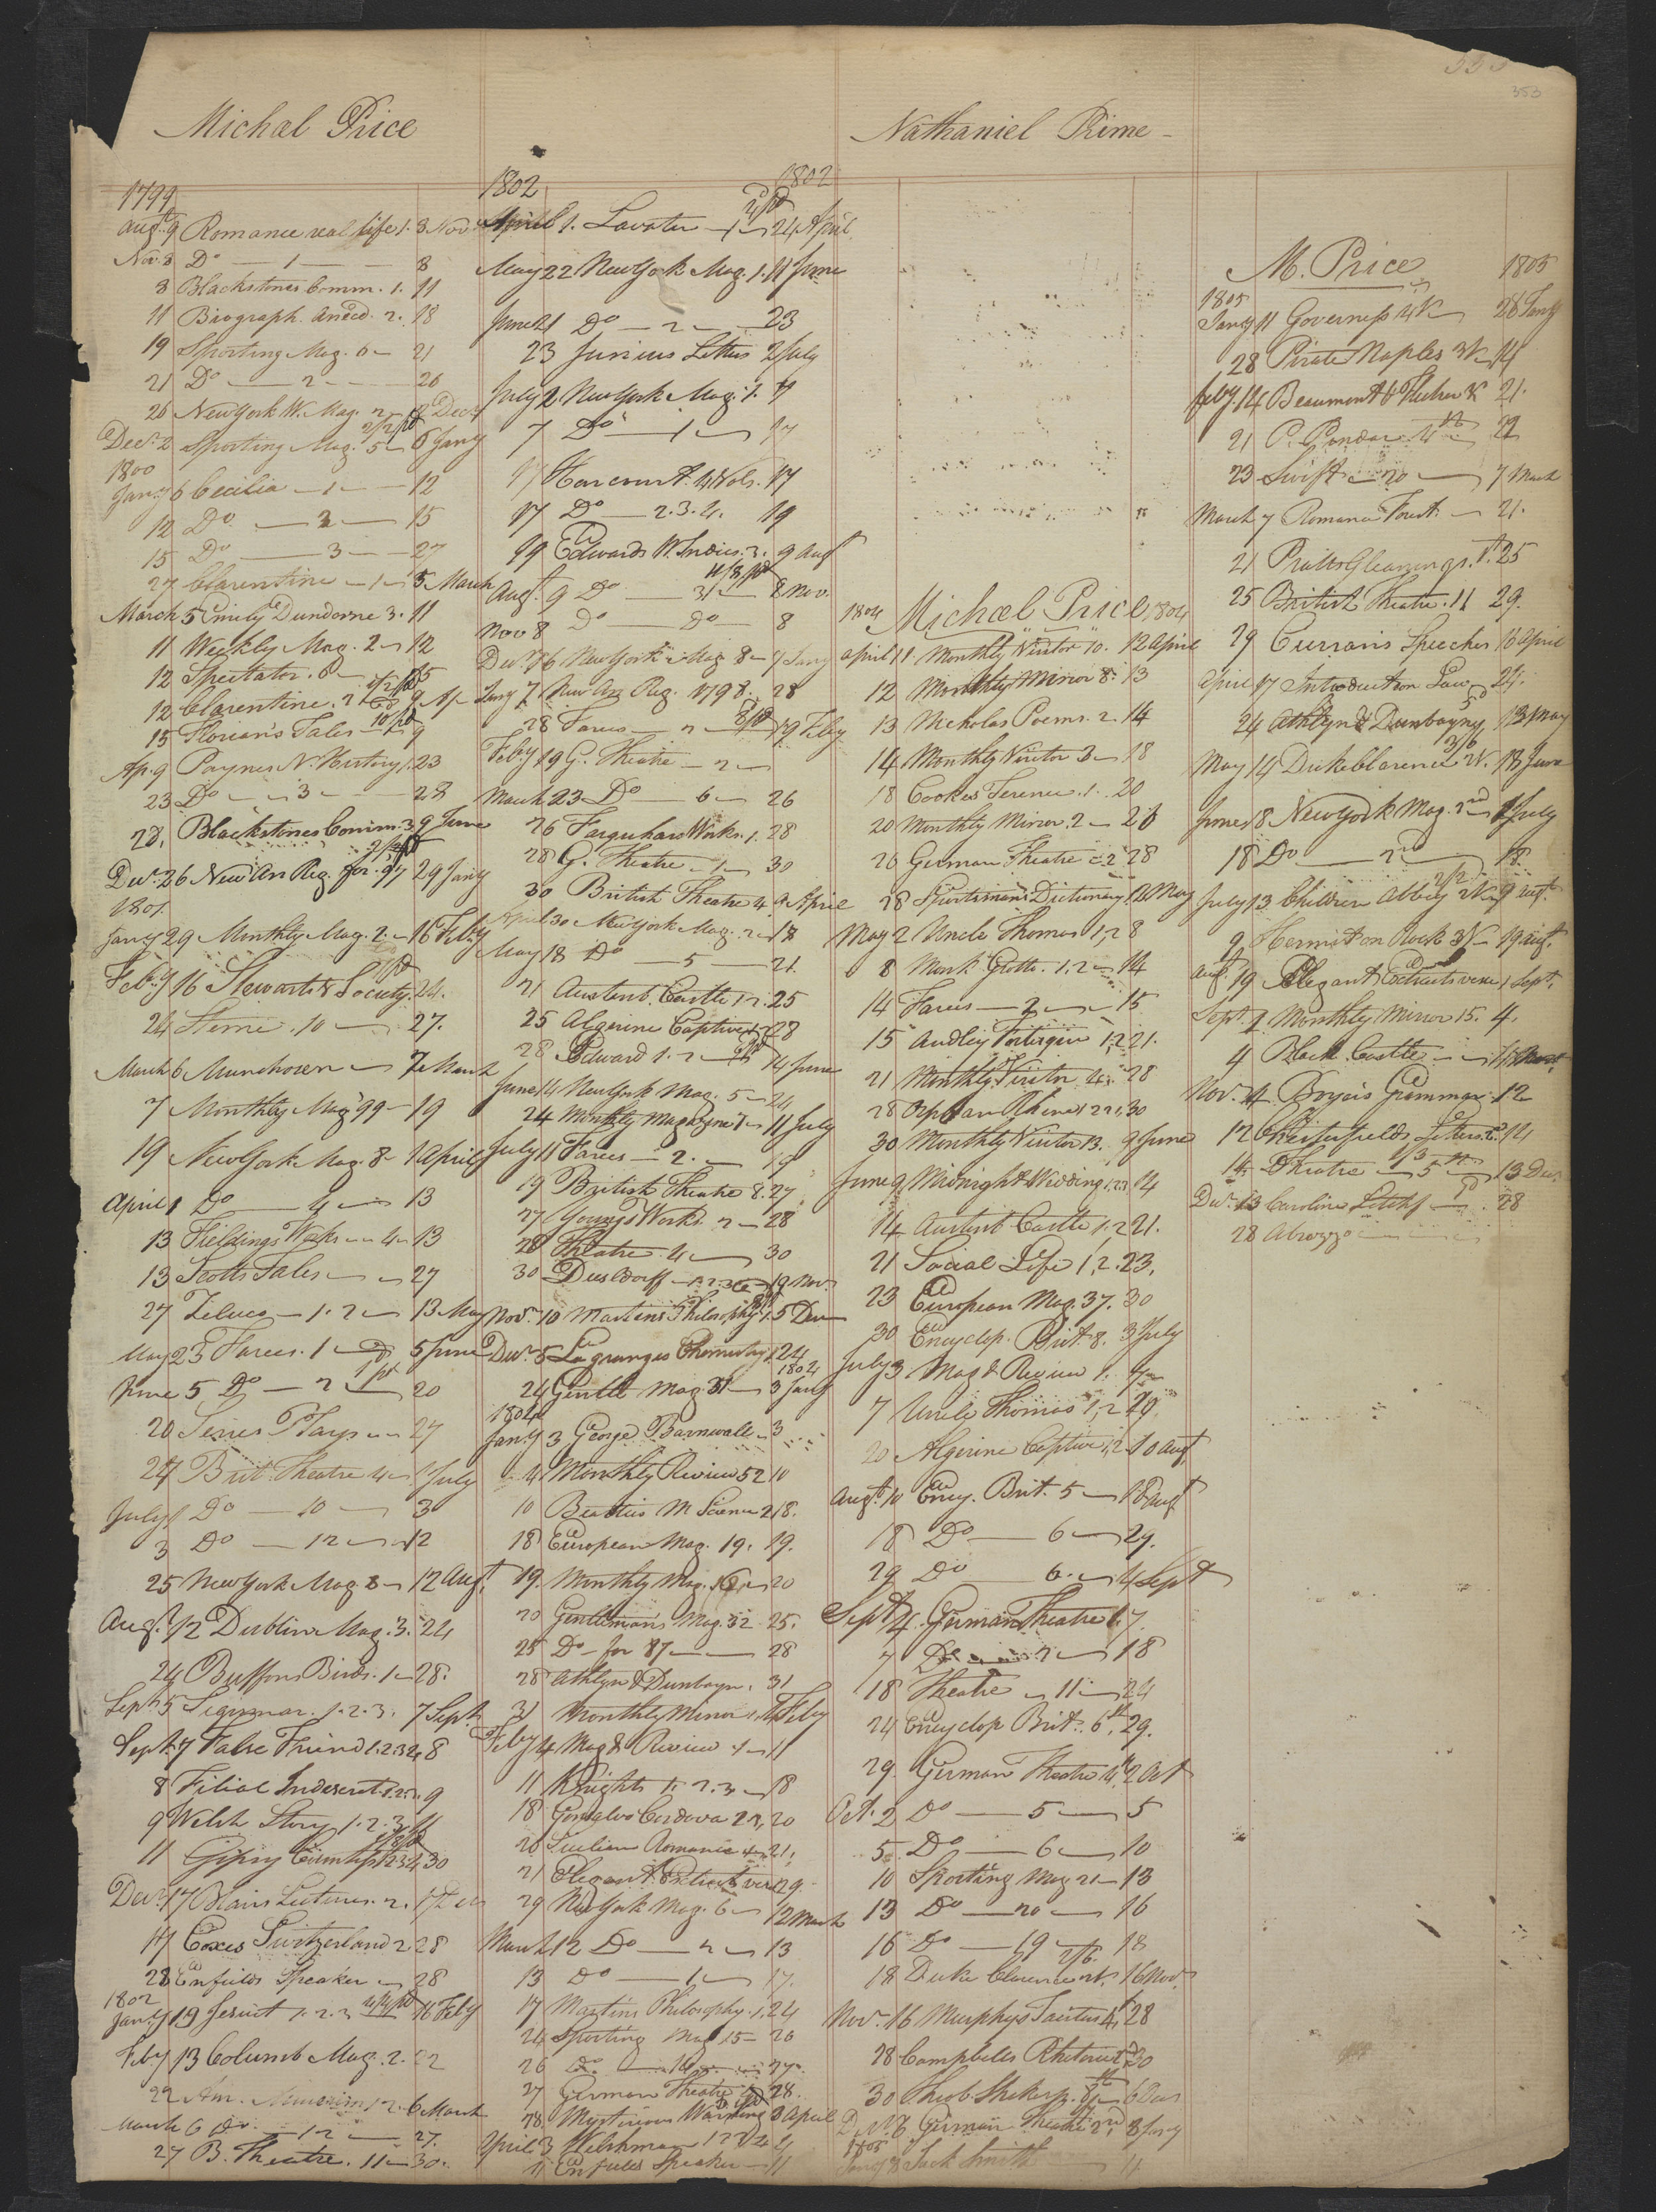 353
Michael Price
1799
Augt 9 Romance real life 1. 3 Nov.
Nov. 3 Do — 1 — 8
8 Blackstones Comm. 1. 11
11 Biograph. Anecd. 2. 18
19 Sporting Mag. 6 — 21
21 Do — 2 — 26
26 New York W. Mag. 2 — 2 Decr
Decr 2 Sporting Mag. 5 — 6 Jany
1800
Jany 6 Cecilia — 1 — 12
12 Do — 2 — 15
15 Do — 3 — 27
27 Clarentine — 1 — 5 March
March 5 Emily Dundorne 3. 11
11 Weekly Mag. 2 — 12
12 Spectator. 8 — 15
12 Clarentine. 2 9 Ap
15 Florian's Tales — 9
Ap. 9 Paynes N. History 1. 23
23 Do — 3 — 28
28. Blackstones Comm. 3 9 June
Decr 26 New An Reg. for 97 29 Jany
1801.
Jany 29 Monthly Mag. 2 — 16 Feby
Feby 16 Stewarts Society. 24.
24 Sterne. 10 — 27.
March 6 Munchosen — 7 March
7 Monthly Mag 99 — 19
19 New York Mag. 8 — 1 April
April 1 Do — 4 — 13
13 Fieldings Works — 4 — 13
13 Scotts Tales — 27
27 Zeluco — 1. 2 — 13 May
May 23 Farces. 1 — 5 June
June 5 Do — 2 — 20
20 Plays — 27
27 Brit. Theatre 4 — 1 July
July 1 Do — 10 — 3
3 Do — 12 — 12
25 New York Mag. 8 — 12 Augt
Augt 12 Dublin Mag. 3. 24
24 Buffons Birds. 1 — 28.
Sept 5 Sigismar. 1. 2. 3. 7 Sept
Sept 7 False Friend 1. 2. 3. 4 8
8 Filial Indiscret. 1. 2. 3. 9
9 Welsh Story 1. 2. 3. 11
11 Gipsy Countess 1 2 3 4 30
Decr 17 Blairs Lectures. 2. 17 Decr
17 Coxes Switzerland 2 28
28 Enfields Speaker — 28
1802
Jany 19 Jesuit 1. 2. 3 16 Feby
Feby 13 Columb Mag. 2. 22
22 Am. Museum 1 2. 6 March
March 6 Do — 12 — 27.
27 B. Theatre. 11 — 30.
1802 1802
April 1. Lavater — 1 — 24 April
May 22 New York Mag. 1. 11 June
June 21 Do — 2 — 23
23 Junius Letters 2 July
July 2 New York Mag. 1. 7
7 Do — 1 — 17
17 Harcourt. 4 Vols. 17
17 Do — 2. 3. 4. 19
19 Edwards W. Indies. 3. 9 Augt
Augt 9 Do — 3 — 8 Nov.
Nov 8 Do — Do — 8
Decr 16 New York Mag 8 — 7 Jany
Jany 7. New An Reg. 1798. 28
28 Farces — 2 — 19 Feby
Feby 19 G. Theatre — 2 —
March 23 Do — 6 — 26
26 Farquhars Works. 1. 28
28 G. Theatre — 1 — 30
30 British Theatre 4. 9 April
April 30 New York Mag. 2 — 18
May 18 Do — 5 — 21.
21 Austenb. Castle 1. 2. 25
25 Algerine Captive 1. 2 28
28 Edward 1. 2 — 14 June
June 14 New York Mag. 5 — 24
24 Monthly Magazine 7 — 11 July
July 11 Farces — 2. — 19
19 British Theatre 8. 27
27 Youngs Works. 2 — 28
28 Theatre. 4 — 30
30 Dusldorff — 1. 2. 3 — 19 Nov.
Novr 10 Martins Philosophy 1. 5 Decr
Decr 5 Lagranges Chemistry 1 24
1804
24 Gentle Mag 31 — 3 Jany
1804
Jany 3 George Barnwall — 3
4 Monthly Review 52 10
10 Beatties M Science 2 18.
18 European Mag. 19. 19.
19. Monthly Mag. 16 — 20
20 Gentlemans Mag. 32. 25.
25 Do for 87 — 28
28 Athlyn & Dunbayn. 31
31 Monthly Mirror 1. 4 Feby
Feby 4 Mag & Review 1 — 11
11 Knights 1. 2. 3 — 18
18 Gonsalvo Cordova 2. 3, 20
20 Sicilian Romance 21.
21 Elegant Extracts verse 29.
29 N York Mag. 6 — 12 March
March 12 Do — 2 — 13
13 Do — 1 — 17.
17 Martins Philosophy. 1. 24
24 Sporting Mag 15 — 26
26 Do — 16 — 27.
27 German Theatre 28.
28. Mysterious Warning 3 April
April 3 Welshman 1 2 3 4 4
4 Enfields Speaker — 11
Nathaniel Prime —
1804 Michael Price 1804
April 11 Monthly Visitor 10. 12 April
12 Monthly Mirror 8. 13
13 Nicholas Poems. 2. 14
14 Monthly Visitor 3 — 18
18 Cookes Terence. 1. 20
20 Monthly Mirror. 2 — 26
26 German Theatre — 2 28
28 Sportsmans Dictionary 1. 2 May
May 2 Uncle Thomas 1, 2 8
8 Monk Grotto. 1. 2 — 14
14 Farces — 2 — 15
15 Audley Fortescue 1, 2 21.
21 Monthly Visitor 4. 28
28 Orphan Rhine 1 2 3, 30
30 Monthly Visitor 13. 9 June
June 9 Midnight Wedding 1, 2 3 14
14 Austenb. Castle 1. 2 21.
21 Social Life 1, 2. 23,
23 European Mag. 37. 30
30 Encyclop. Brit. 8. 3 July
July 3 Mag & Review 1. 7
7 Uncle Thomas 1, 2 20
20 Algerine Captive 1, 2 10 Augt
Augt 10 Ency. Brit. 5 — 18 Augt
18 Do — 6 — 29.
29 Do — 6. — 4 Sept
Sept 4. German Theatre 1. 7.
7 Do — 2 — 18
18 Theatre — 11 — 24
24 Encyclop Brit. 6th, 29.
29. German Theatre 4th 2 Oct
Oct. 2 Do — 5 — 5
5. Do — 6 — 10
10 Sporting Mag 21 — 13
13 Do — 20 — 16
16 Do — 19 — 18
18 Duke Clarence 2 V. 16 Nov.
Nov. 16 Murphys Tacitus 4, 28
28 Campbells Rhetoric 2d 30
30 Theob Shakesp. 8th — 6 Decr
Decr 6 German Theatre 2nd, 3 Jany
1805
Jany 3 Jack Smith — 11
M. Price 1805
1805
Jany 11 Governess 4 V. 28 Jany
28 Pirate Naples 3 V. 14
Feby. 14 Beaumont & Flecher 21.
21 P. Pindar. 4th 22
23 Swift — 20 — 7 March
March 7 Romance Forest — 21.
21 Pratts Gleanings. 1st. 25
25 British Theatre. 11 29.
29 Currans Speeches 16 April
April 17 Introduction Law 24.
24 Athlyn & Dunbayny 13 May
May 14 Duke Clarence 2 V. 18 June
June 18 New York Mag. 2nd July
18 Do — 2nd — 18.
July 13 Children Abbey 2 V. 9 Augt
9 Hermit on Rock 3 V — 19 Augt.
Augt 19 Elegant Extracts verse 1 Sept.
Sept. 1 Monthly Mirror 15. 4.
4 Black Castle —
Nov. 4 Boyers Grammar. 12
12 Chesterfields Letters 2d. 14
14 Theatre — 5 — 13 Decr
Decr 13 Caroline Litchf — 28
28 Abrozzo